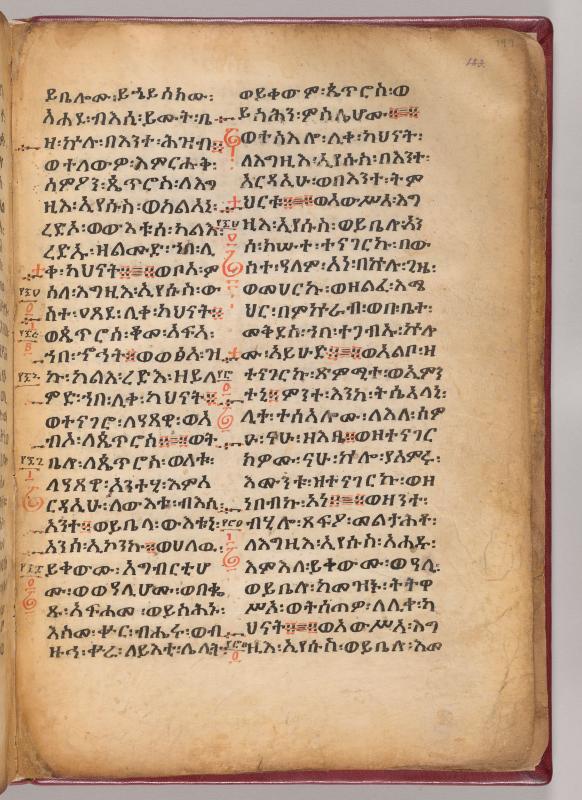 ይቤሎሙ፡ይኄይሰክሙ፡
ለሐደ፡ብእሲ፡ይሙት፡ቤ
ዛ፡ኵሉ፡በእንተ፡ሕዝብ፡
ወተለውዎ፡እምርሑቅ፡
ስምዖን፡ጴጥሮስ፡ለእግ
ዚእ፡ኢየሱስ፡ወካልእኒ፡
ረድእ፡ወውእቱሰ፡ካልእ፡
ረድኡ፡ዘልሙድ፡ኀበ፡ሊ
ቀ፡ካህናት፡፡ወቦአ፡ም
ስለ፡እግዚእ፡ኢየሱስ፡ው
ስተ፡ዐጸደ፡ሊቀ፡ካህናት፡፡
ወጴጥሮስ፡ቆመ፡አፍኣ፡
ኀበ፡ኆኅት፡፡ወወፅአ፡ዝ
ኩ፡ካልእ፡ረድእ፡ዘይለ
ምድ፡ኀበ፡ሊቀ፡ካህናት፡፡
ወተናገሮ፡ለዓጸዊ፡ወአ
ብኦ፡ለጴጥሮስ፡፡ወት
ቤሎ፡ለጴጥሮስ፡ወለቱ፡
ለዓጸዊ፡አንተሂ፡እምአ
ርዳኢሁ፡ለውእቱ፡ብእሲ፡
አንተ፡፡ወይቤላ፡ውእቱኒ፡
አንሰ፡ኢኮንኩ፡፡ወሀለዉ፡
ይቀውሙ፡አግብርቲሆ
ሙ፡ወወዓሊሆሙ፡ወበቈ
ጹ፡አፍሐመ፡ወይስሕኑ፡
እስመ፡ቍር፡ብሔሩ፡ወብ
ዙኅ፡ቍረ፡ለይእቲ፡ሌሊት፡
ወይቀውም፡ጴጥሮስ፡ወ
ይስሕን፡ምስሌሆሙ፡፡
ወተስእሎ፡ሊቀ፡ካህናት፡
ለእግዚእ፡ኢየሱስ፡በእንተ፡
አርዳኢሁ፡ወበእንተ፡ትም
ህርቱ፡፡ወአውሥአ፡እግ
ዚእ፡ኢየሱስ፡ወይቤሎ፡አን
ሰ፡ክሡተ፡ተናገርኩ፡በው
ስተ፡ዓለም፡አነ፡በኵሉ፡ጊዜ፡
ወመሀርኩ፡ወዘልፈ፡እሜ
ህር፡በምኵራብ፡ወበ፡ቤተ፡
መቅደስ፡ኀበ፡ተጋብኡ፡ኵሎ
ሙ፡አይሁድ፡፡ወአልቦ፡ዘ
ተናገርኩ፡ጽምሚተ፡ወኢምን
ተኒ፡፡ምንተ፡እንከ፡ትሴአለኒ፡
ሊተ፡ተሰአሎሙ፡ለእለ፡ሰም
ዑ፡ናሁ፡ዘእቤ፡፡ወዘተናገር
ክዎሙ፡ናሁ፡ኵሎ፡ያአምሩ፡
እሙንቱ፡ዘተናገርኩ፡ወዘ
ነበብኩ፡አነ፡፡ወዘንተ፡
ብሂሎ፡ጸፍዖ፡መልታሕቶ፡
ለእግዚእ፡ኢየሱስ፡አሐዱ፡
እምእለ፡ይቀውሙ፡ወዓሊ፡
ወይቤሎ፡ከመዝኑ፡ትትዋ
ሥኦ፡ወትሰጠዎ፡ለሊቀ፡ካ
ህናት፡፡ወአውሥአ፡እግ
ዚእ፡ኢየሱስ፡ወይቤሎ፡እመ